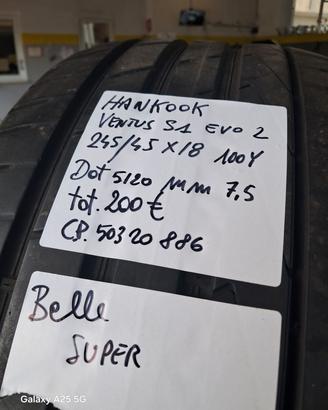 HANKOOK
VENTUS S1 EVO 2
245/45 X18 100Y
Dot 5120 mm 7,5
tot. 200 €
CB. 50320886
Belle
SUPER
Galaxy A25 5G